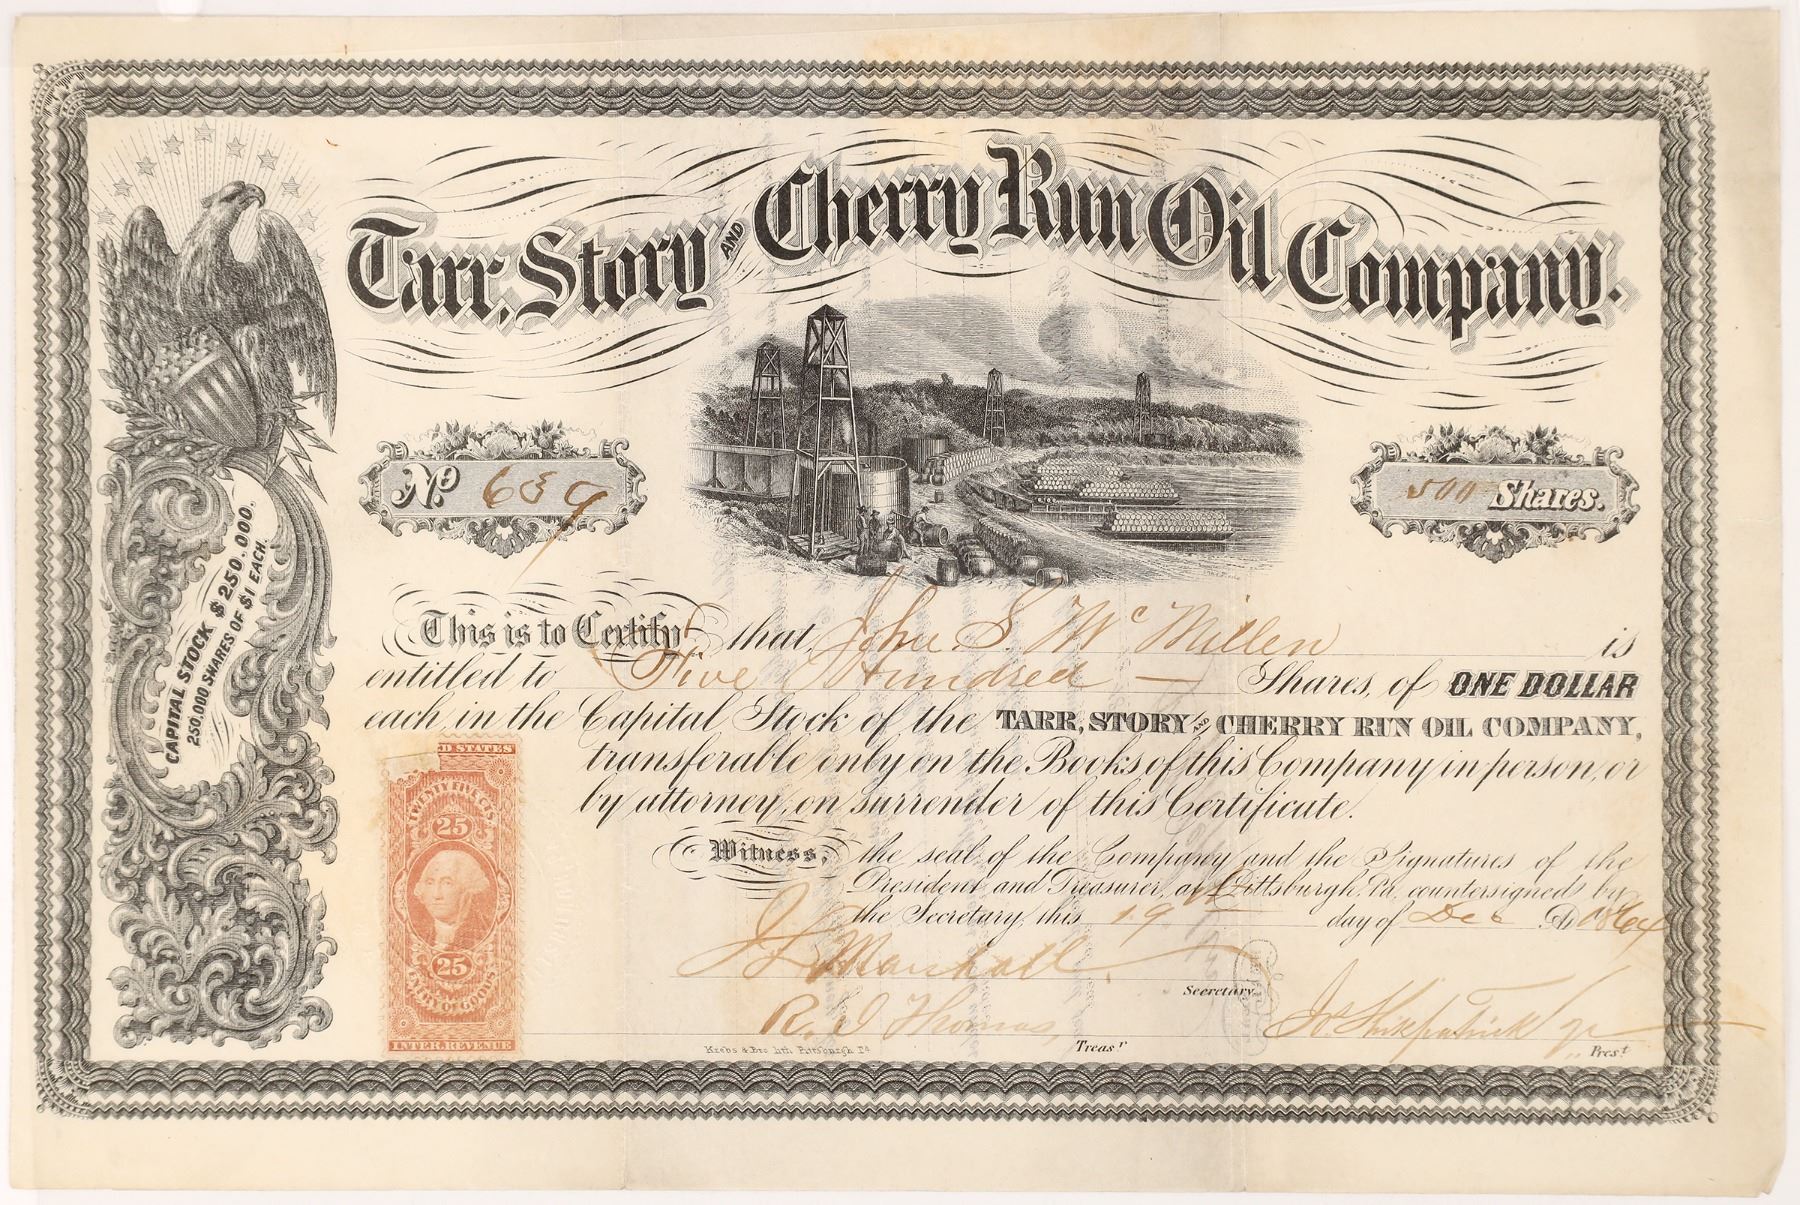 Tarr, Story AND Cherry Run Oil Company.
No 639
500 Shares.
CAPITAL STOCK $250.000.
250,000 SHARES OF $1 EACH.
This is to Certify that John S. McMillen is
entitled to Five Hundred — Shares, of ONE DOLLAR
each, in the Capital Stock of the TARR, STORY AND CHERRY RUN OIL COMPANY,
transferable only on the Books of this Company in person, or
by attorney, on surrender of this Certificate.
Witness, the seal of the Company and the Signatures of the
President and Treasurer, at Pittsburgh, Pa. countersigned by
the Secretary, this 19 day of Dec AD 1864
J L Marshall
Secretary
R. J Thomas
Treasr
Kirkpatrick Jr
Prest
Krebs & Bro lith Pittsburgh Pa
D STATES
TWENTY FIVE CTS
25
25
ENTRY OF GOODS
INTER. REVENUE